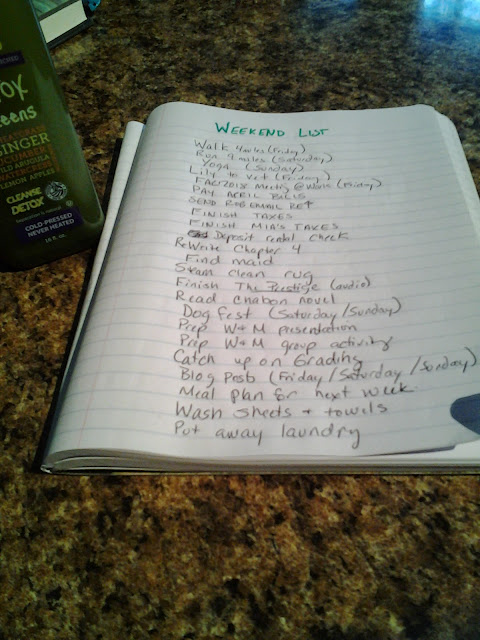 TOX
eens
GINGER
LEMON APPLES
CLEANSE
DETOX
COLD-PRESSED
NEVER HEATED
WEEKEND LIST
Walk 4 miles (Friday)
Run 9 miles (Saturday)
Yoga (Sunday)
Lily to Vet (Friday)
@ (Friday)
PAY APRIL BILLS
SEND ROB EMAIL RE
FINISH TAXES
FINISH MIA'S TAXES
Deposit rental check
ReWrite Chapter 4
Find maid
Steam clean rug
Finish The Prestige (audio)
Read Chabon novel
Dog Fest (Saturday/Sunday)
Prep W+M presentation
Prep W+M group activity
Catch up on Grading
Blog Posts (Friday/Saturday/Sunday)
Meal Plan for next week
Wash sheets + towels
Put away laundry